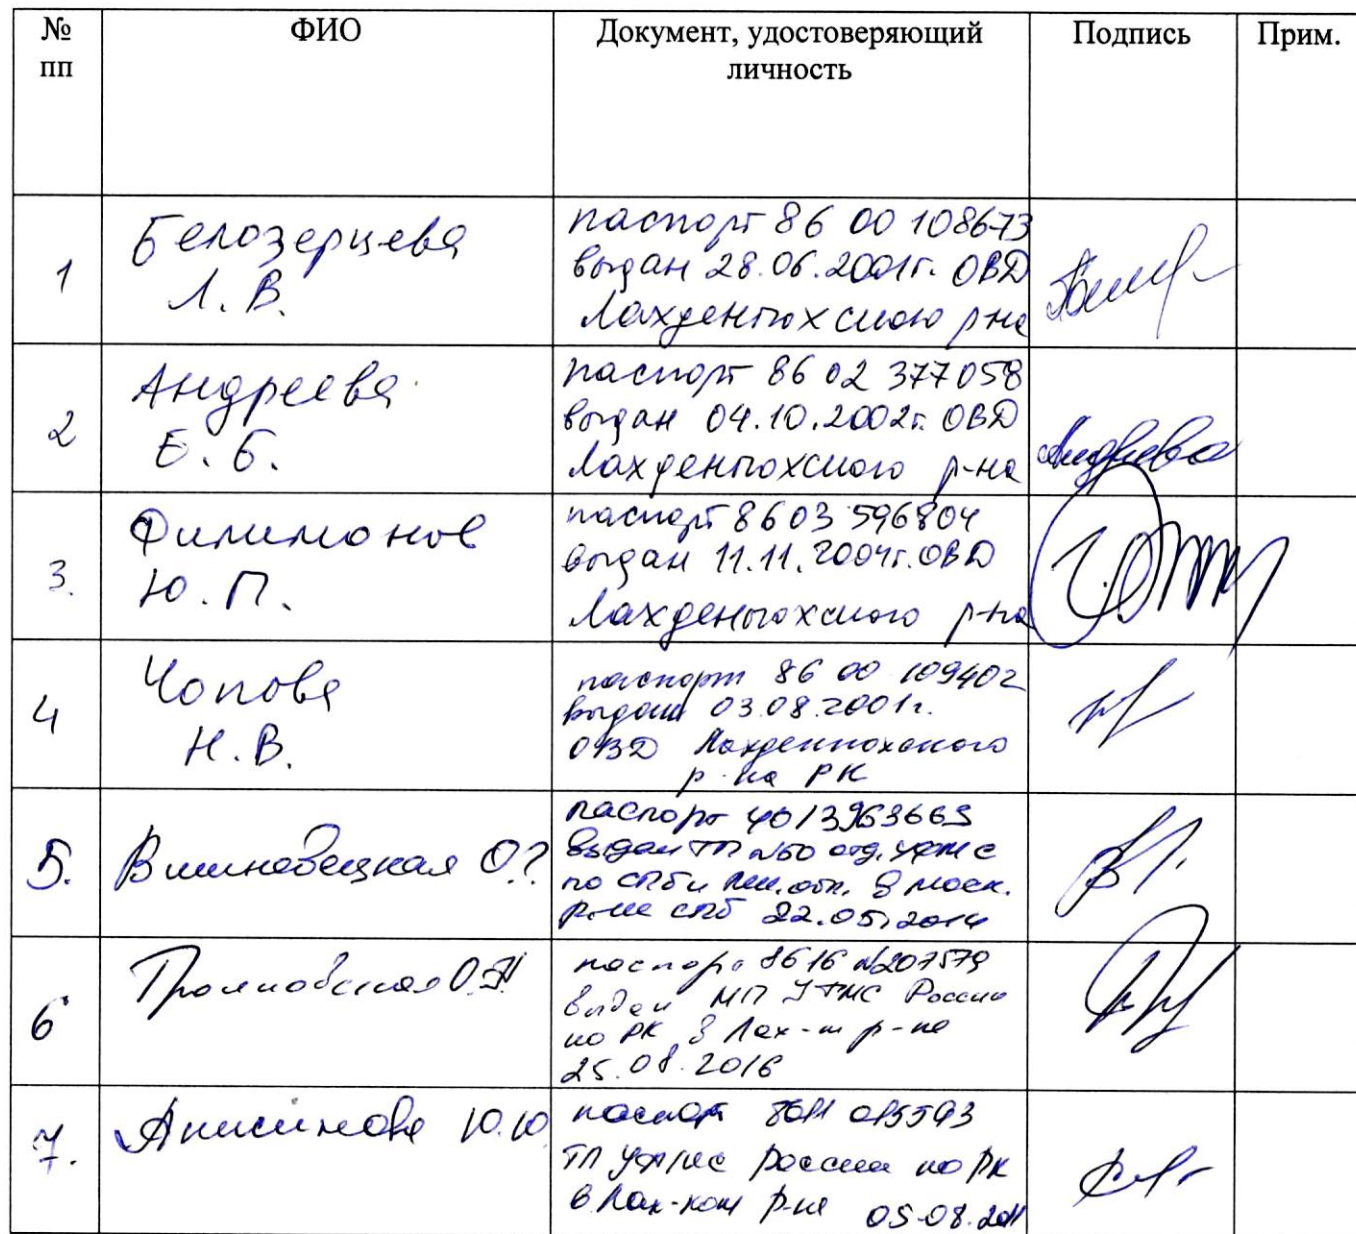 № пп
ФИО
Документ, удостоверяющий личность
Подпись
Прим.
1
Белозерцева
Л. В.
паспорт 86 00 108673
выдан 28.06.2001г. ОВД
Лахденпохского р-на
2
Андреева
Е. Б.
паспорт 86 02 377058
выдан 04.10.2002г. ОВД
Лахденпохского р-на
Андреева
3.
Филимонов
Ю. П.
паспорт 8603 596804
выдан 11.11.2004г. ОВД
Лахденпохского р-на
4
Чопова
Н. В.
паспорт 86 00 109402
выдан 03.08.2001г.
ОВД Лахденпохского
р-на РК
5.
Вишневецкая О?
паспорт 4013963663
выдан ТП №50 отд. УФМС
по СПб и Лен. обл. в Моск.
р-не СПб 22.05.2014
6
О.Н
паспорт 8616 №207579
выдан МП УФМС России
по РК в Лах-м р-не
25.08.2016
7.
Анисимова Ю.Ю.
паспорт 8611 015593
ТП УФМС России по РК
в Лах-ком р-не 05.08.2011